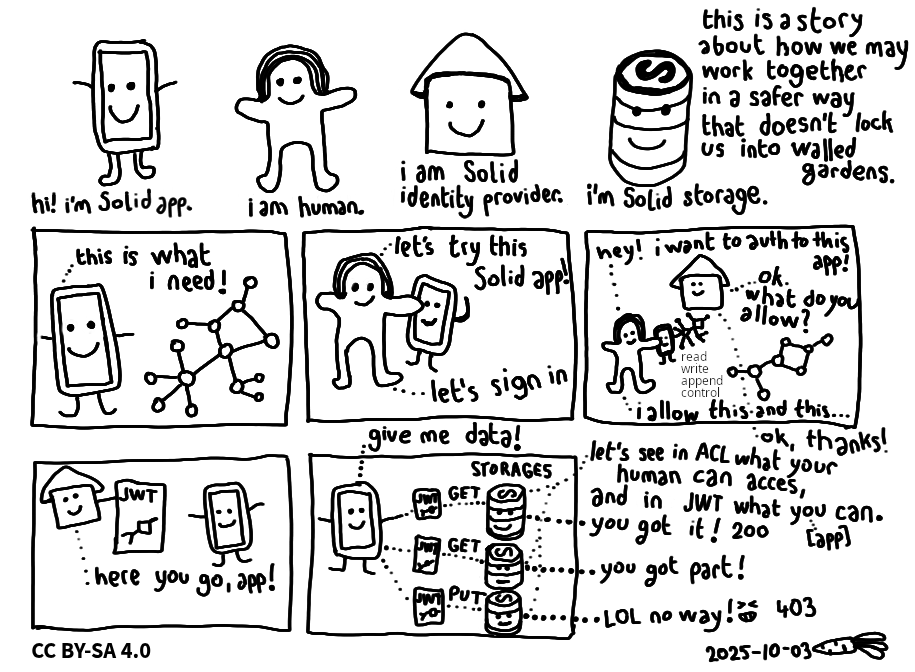 this is a story
about how we may
work together
in a safer way
that doesn't lock
us into walled
gardens.
hi! i'm Solid app.
i am human.
i am Solid
identity provider.
i'm Solid storage.
this is what
i need!
let's try this
Solid app!
let's sign in
hey! i want to auth to this
app!
ok.
what do you
allow?
read
write
append
control
i allow this and this...
ok, thanks!
JWT
here you go, app!
give me data!
STORAGES
JWT GET
JWT GET
JWT PUT
let's see in ACL what your
human can acces,
and in JWT what you can.
[app]
you got it! 200
you got part!
LOL no way! 403
CC BY-SA 4.0
2025-10-03